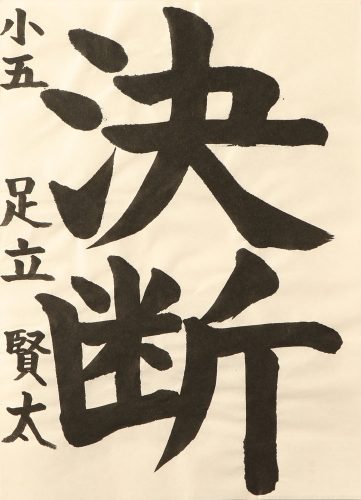 決断
小五 足立 賢太